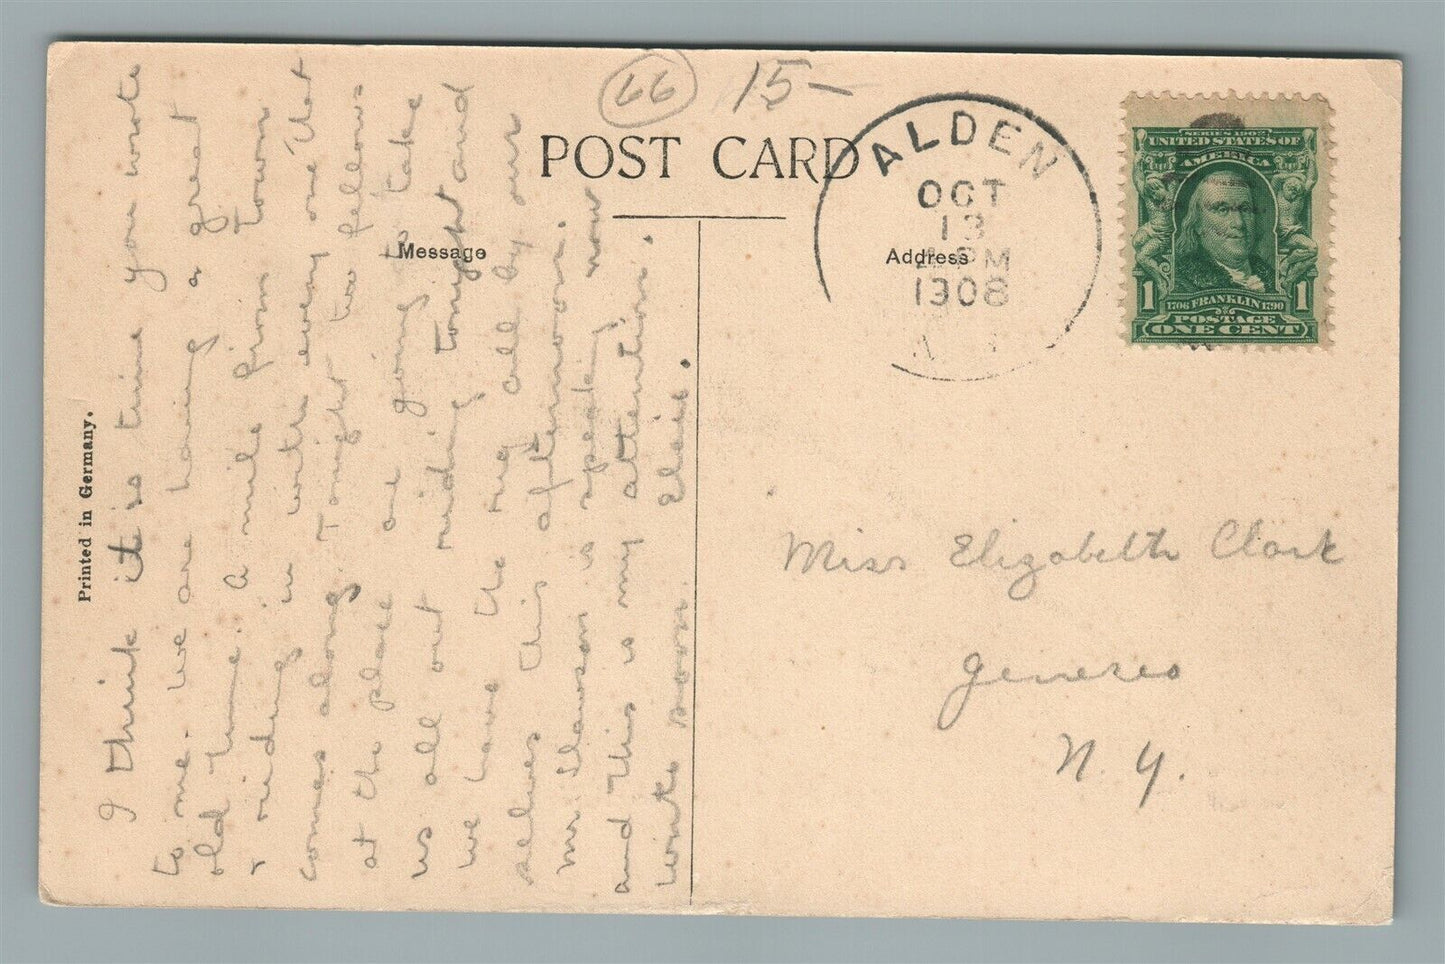 66 15-
POST CARD
Message
Address
Printed in Germany.
ALDEN
OCT
13
PM
1908
SERIES 1902
UNITED STATES OF
AMERICA
1 1706 FRANKLIN 1790 1
POSTAGE
ONE CENT
I think it's time you wrote
to me. We are having a great
old time. A mile from town
& riding in with every one that
comes along. Tonight two fellows
at the place are going to take
us all out riding tonight and
we have the rig all by our
selves this afternoon.
Mr. is speaking now
and this is my attention.
Write soon. Elsie.
Miss Elizabeth Clark
Geneseo
N. Y.